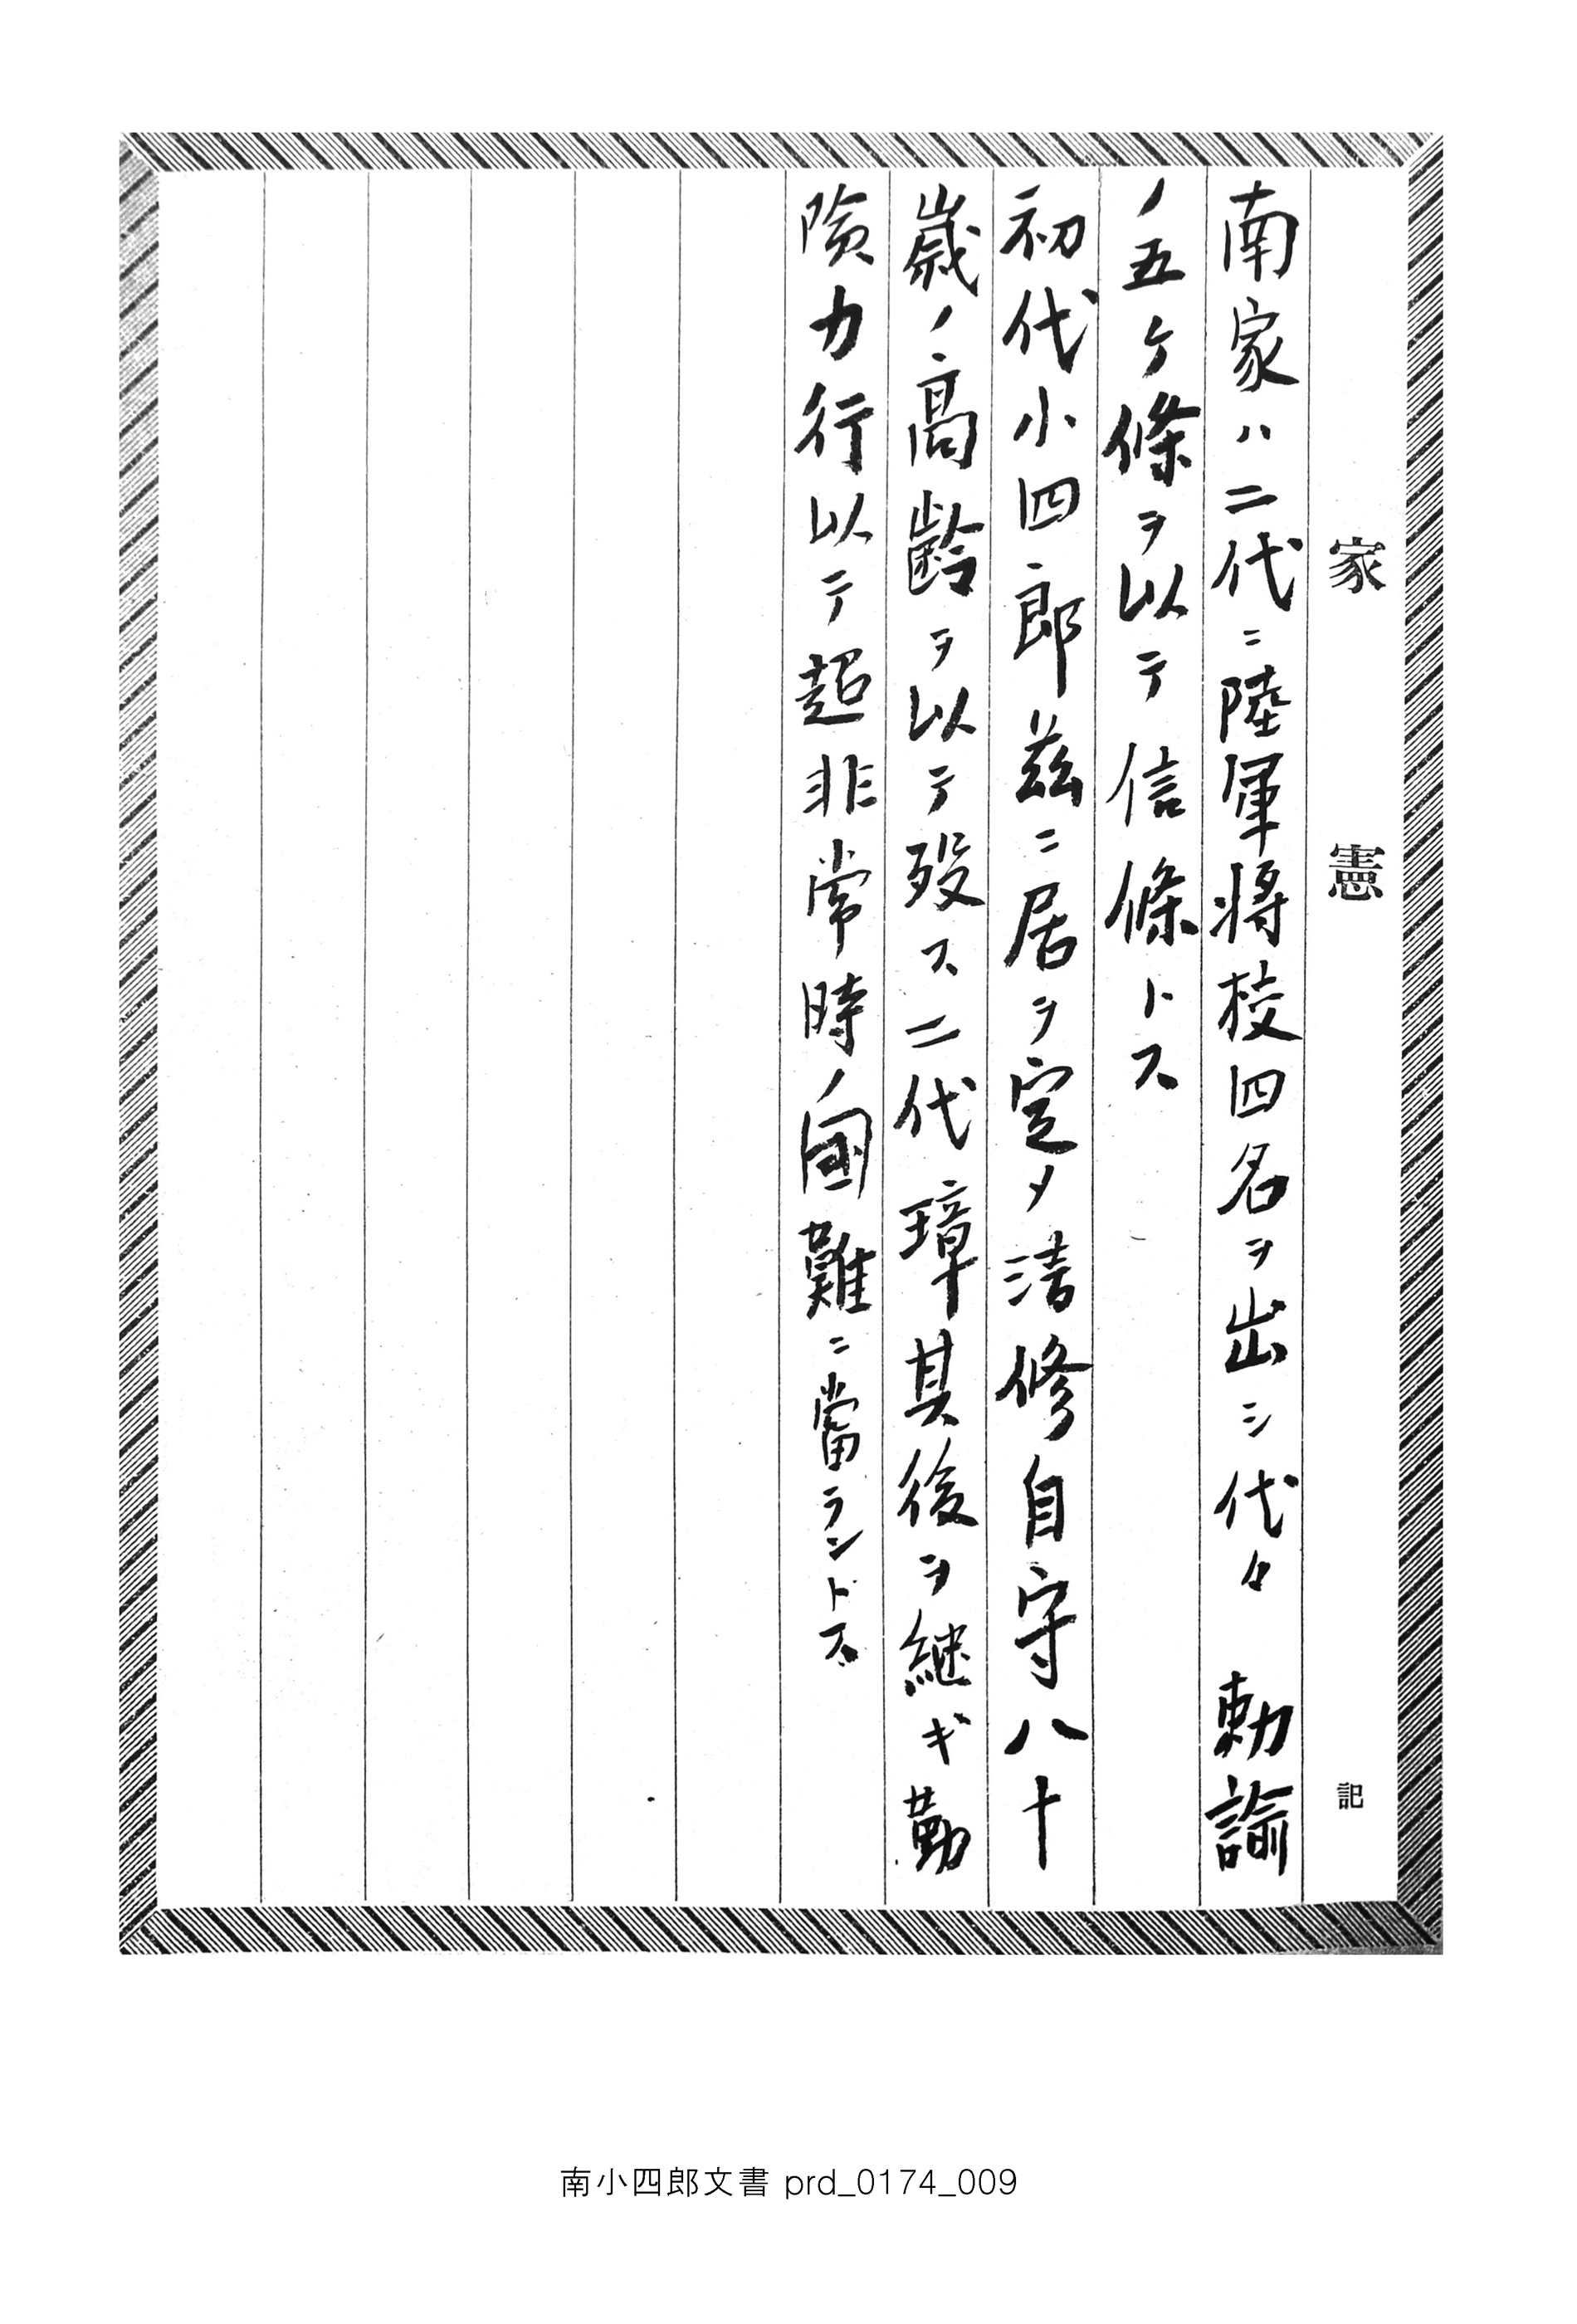 家憲 記
南家ハ二代ニ陸軍将校四名ヲ出シ代々 勅諭
ノ五ケ條ヲ以テ信條トス
初代小四郎茲ニ居ヲ定メ潔修自守八十
歳ノ高齢ヲ以テ歿ス二代璋其後ヲ継ギ勤
険力行以テ超非常時ノ國難ニ當ラントス
南小四郎文書 prd_0174_009